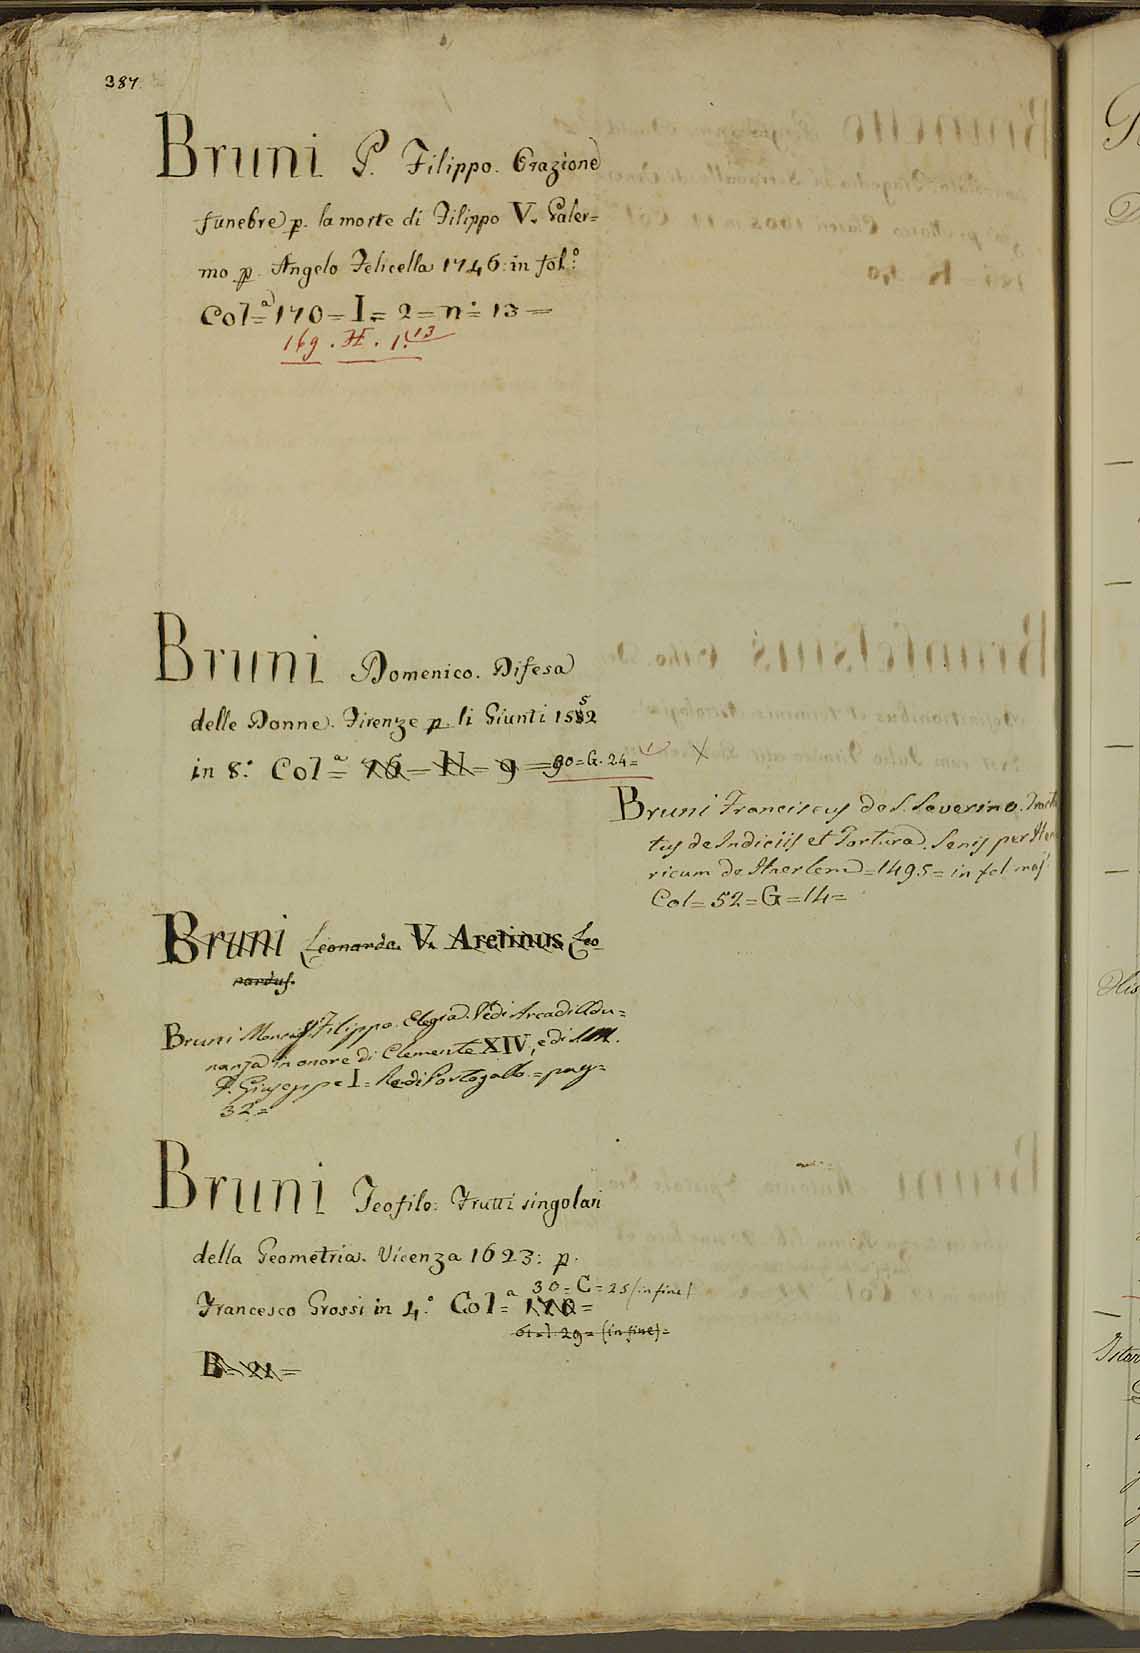 387.
Bruni P. Filippo. Orazione
funebre p. la morte di Filippo V. Paler=
mo p. Angelo Felicella 1746: in fol.°
Col=ª 170= I= 2= n.= 13=
169. II. 1.13
Bruni Domenico. Difesa
delle Donne. Firenze p. li Giunti 1552
in 8.° Col=ª 76= N= 9= 90=G. 24=
Bruni Franciscus de S. Severino.
tus de Indiciis et Tortura. Senis per Hen
ricum de Haerlem=1495= in fol. maj.
Col= 52=G=14=
Bruni Leonardo. V. Aretinus Leo
nardus.
Bruni Filippo. Elegia. Vedi Arcadi Adu=
nanza in onore di Clemente XIV, e di
D. Giuseppe I= Re di Portogallo.= pag=
32=
Bruni Teofilo: Frutti singolari
della Geometria. Vicenza 1623: p.
30=C=25 (in fine)
Francesco Grossi in 4.° Col=ª 170=
29= (in fine)=
B= 21=